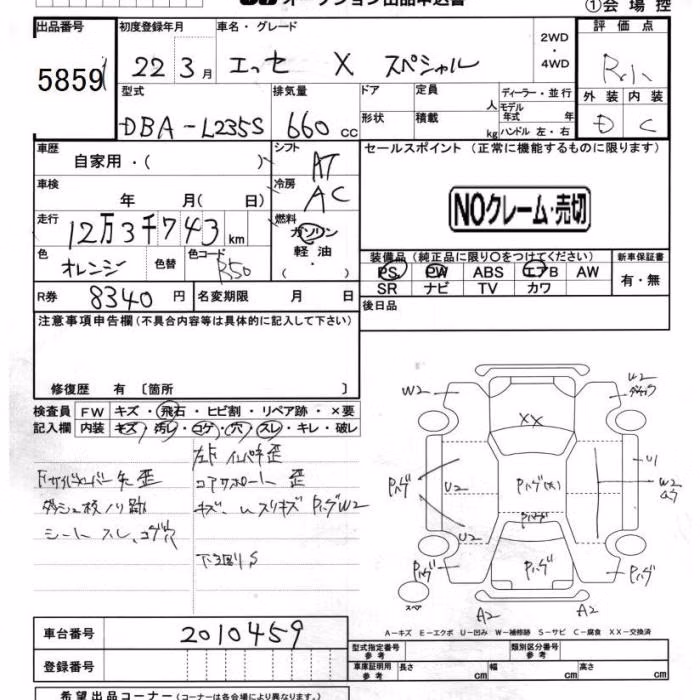 オークション出品申込書 ①会場控
出品番号 初度登録年月 車名・グレード 2WD ・ 4WD 評価点
58591 22 3月 エッセ X スペシャル
型式 排気量 ドア 定員 人 ディーラー・並行 外装 内装
DBA-L235S 660 cc 形状 積載 kg モデル年式 年 ハンドル 左・右 D C
車歴 自家用・( ) シフト AT セールスポイント (正常に機能するものに限ります)
車検 年 月( 日) 冷房 AC NOクレーム・売切
走行 12万3千743 km 燃料 ガソリン 軽油 ・ ( )
色 オレンジ 色替 色コード R50 装備品 (純正品に限り○をつけてください) 新車保証書
PS PW ABS エアB AW 有・無
R券 8340 円 名変期限 月 日 SR ナビ TV カワ
注意事項申告欄 (不具合内容等は具体的に記入して下さい) 後日品
修復歴 有 〔箇所 〕
検査員 FW キズ・飛石・ヒビ割・リペア跡・×要
記入欄 内装 キズ・汚レ・コゲ・穴・スレ・キレ・破レ
歪
コアサポート 歪
シートスレ、コゲ穴
下廻りS
W2 XX U1 U2 W2 U2 A2 A2
スペア
A-キズ E-エクボ U-凹み W-補修跡 S-サビ C-腐食 XX-交換済
車台番号 2010459
型式指定番号 参考 類別区分番号 参考
登録番号 車庫証明用 参考 長さ cm 幅 cm 高さ cm
希望出品コーナー (コーナーは各会場により異なります)